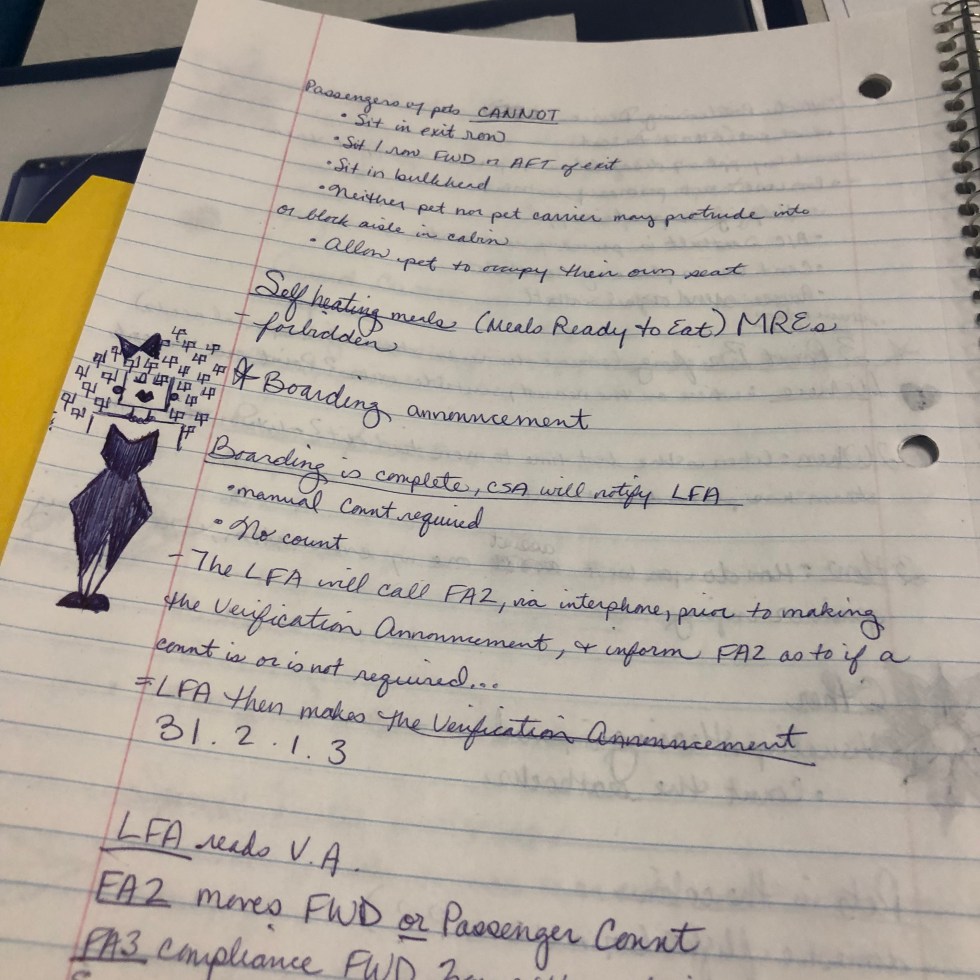 Passengers w/ pets CANNOT
• Sit in exit row
• Sit 1 row FWD or AFT of exit
• Sit in bulkhead
• Neither pet nor pet carrier may protrude into
or block aisle in cabin
• Allow pet to occupy their own seat
Self heating meals (Meals Ready to Eat) MREs
- forbidden
* Boarding announcement
Boarding is complete, CSA will notify LFA
• manual count required
• No count
- The LFA will call FA2, via interphone, prior to making
the Verification Announcement, & inform FA2 as to if a
count is or is not required...
= LFA then makes the Verification Announcement
31.2.1.3
LFA reads V.A.
FA2 moves FWD or Passenger Count
FA3 compliance FWD